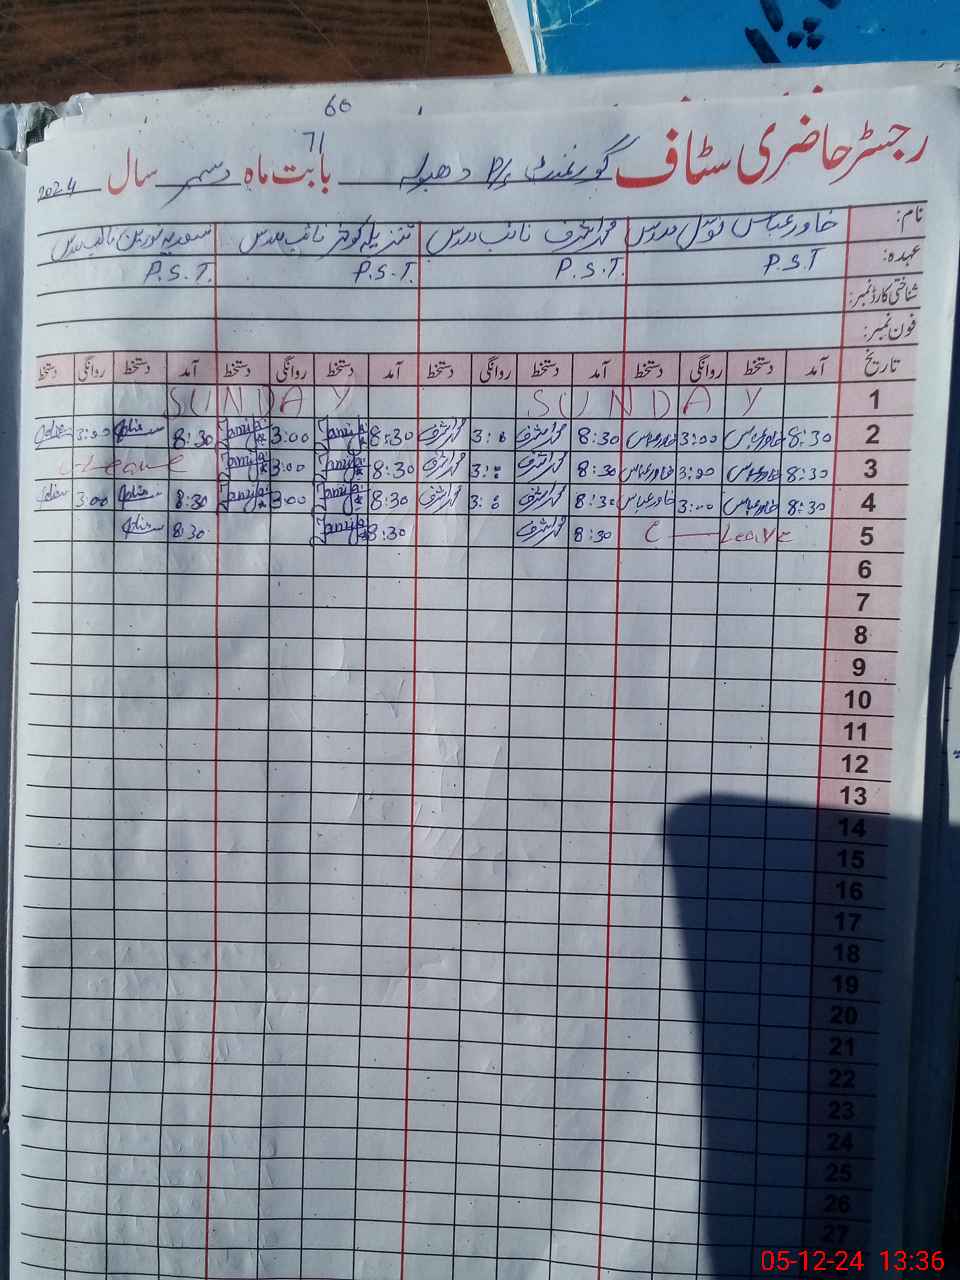 60
71
رجسٹر حاضری سٹاف گورنمنٹ P/S دھبولہ بابت ماہ دسمبر سال 2024
نام: خاور عباس مدرس محمد اشرف نائب مدرس تنزیلہ کوثر نائب مدرس سعدیہ نورین نائب مدرس
عہدہ: P.S.T P.S.T. P.S.T. P.S.T.
شناختی کارڈ نمبر:
فون نمبر:
تاریخ آمد دستخط روانگی دستخط آمد دستخط روانگی دستخط آمد دستخط روانگی دستخط آمد دستخط روانگی دستخط
1 SUNDAY SUNDAY
2 8:30 خاور عباس 3:00 خاور عباس 8:30 محمد اشرف 3:0 محمد اشرف 8:30 Tanzila 3:00 Tanzila 8:30 3:00
3 8:30 خاور عباس 3:00 خاور عباس 8:30 محمد اشرف 3:0 محمد اشرف 8:30 Tanzila 3:00 Tanzila C-Leave
4 8:30 خاور عباس 3:00 خاور عباس 8:30 محمد اشرف 3:0 محمد اشرف 8:30 Tanzila 3:00 Tanzila 8:30 3:00
5 C—Leave 8:30 محمد اشرف 8:30 Tanzila 8:30
6
7
8
9
10
11
12
13
14
15
16
17
18
19
20
21
22
23
24
25
26
27
05-12-24 13:36